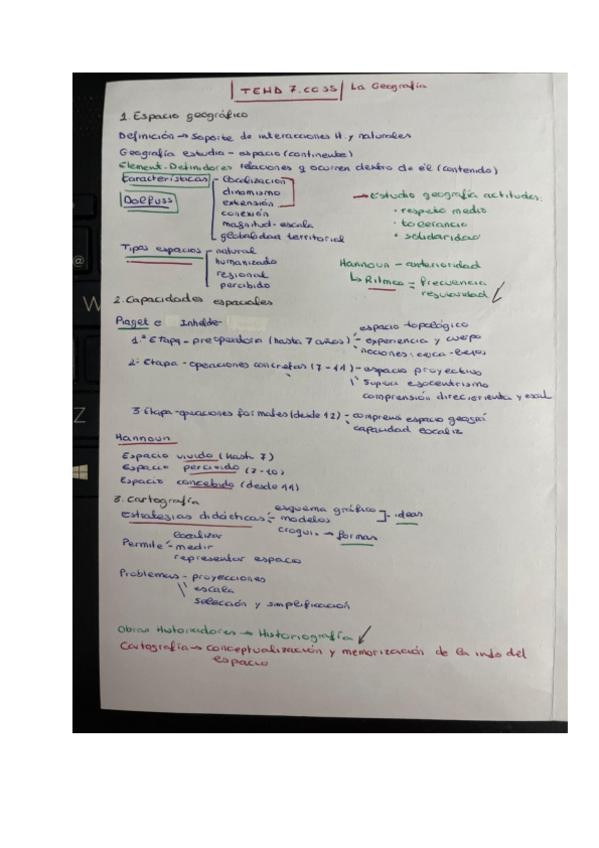 TEMA 7. CCSS La Geografía
1. Espacio geográfico
Definición → Soporte de interacciones H. y naturales
Geografía estudia - espacio (continente)
Element. Definidores relaciones q ocurren dentro de él (contenido)
Características - localización
dinamismo
Dolfuss
extensión
conexión
magnitud - escala
globalidad territorial
→ Estudio geografía actitudes:
· respeto medio
· tolerancia
· solidaridad
Tipos espacios - natural
humanizado
regional
percibido
Hannoun - anterioridad
↳ Ritmo = frecuencia
regularidad
2. Capacidades espaciales
Piaget e Inhelde
1.ª Etapa - preoperatora (hasta 7 años) - espacio topológico
experiencia y cuerpo
nociones: cerca - lejos
2ª Etapa - operaciones concretas (7 - 11) - espacio proyectivo
supera egocentrismo
comprensión direc, orienta y escal
3 Etapa - operaciones formales (desde 12) - comprens espacio geográ
capacidad localiz
Hannoun
Espacio vivido (hasta 7)
Espacio percibido (7 - 10)
Espacio concebido (desde 11)
3. Cartografía
Estrategias didácticas: - esquema gráfico
modelos - ideas
croquis → formas
Permite - localizar
medir
representar espacio
Problemas - proyecciones
escala
selección y simplificación
Obras Historiadores → Historiografía
Cartografía → conceptualización y memorización de la info del
espacio